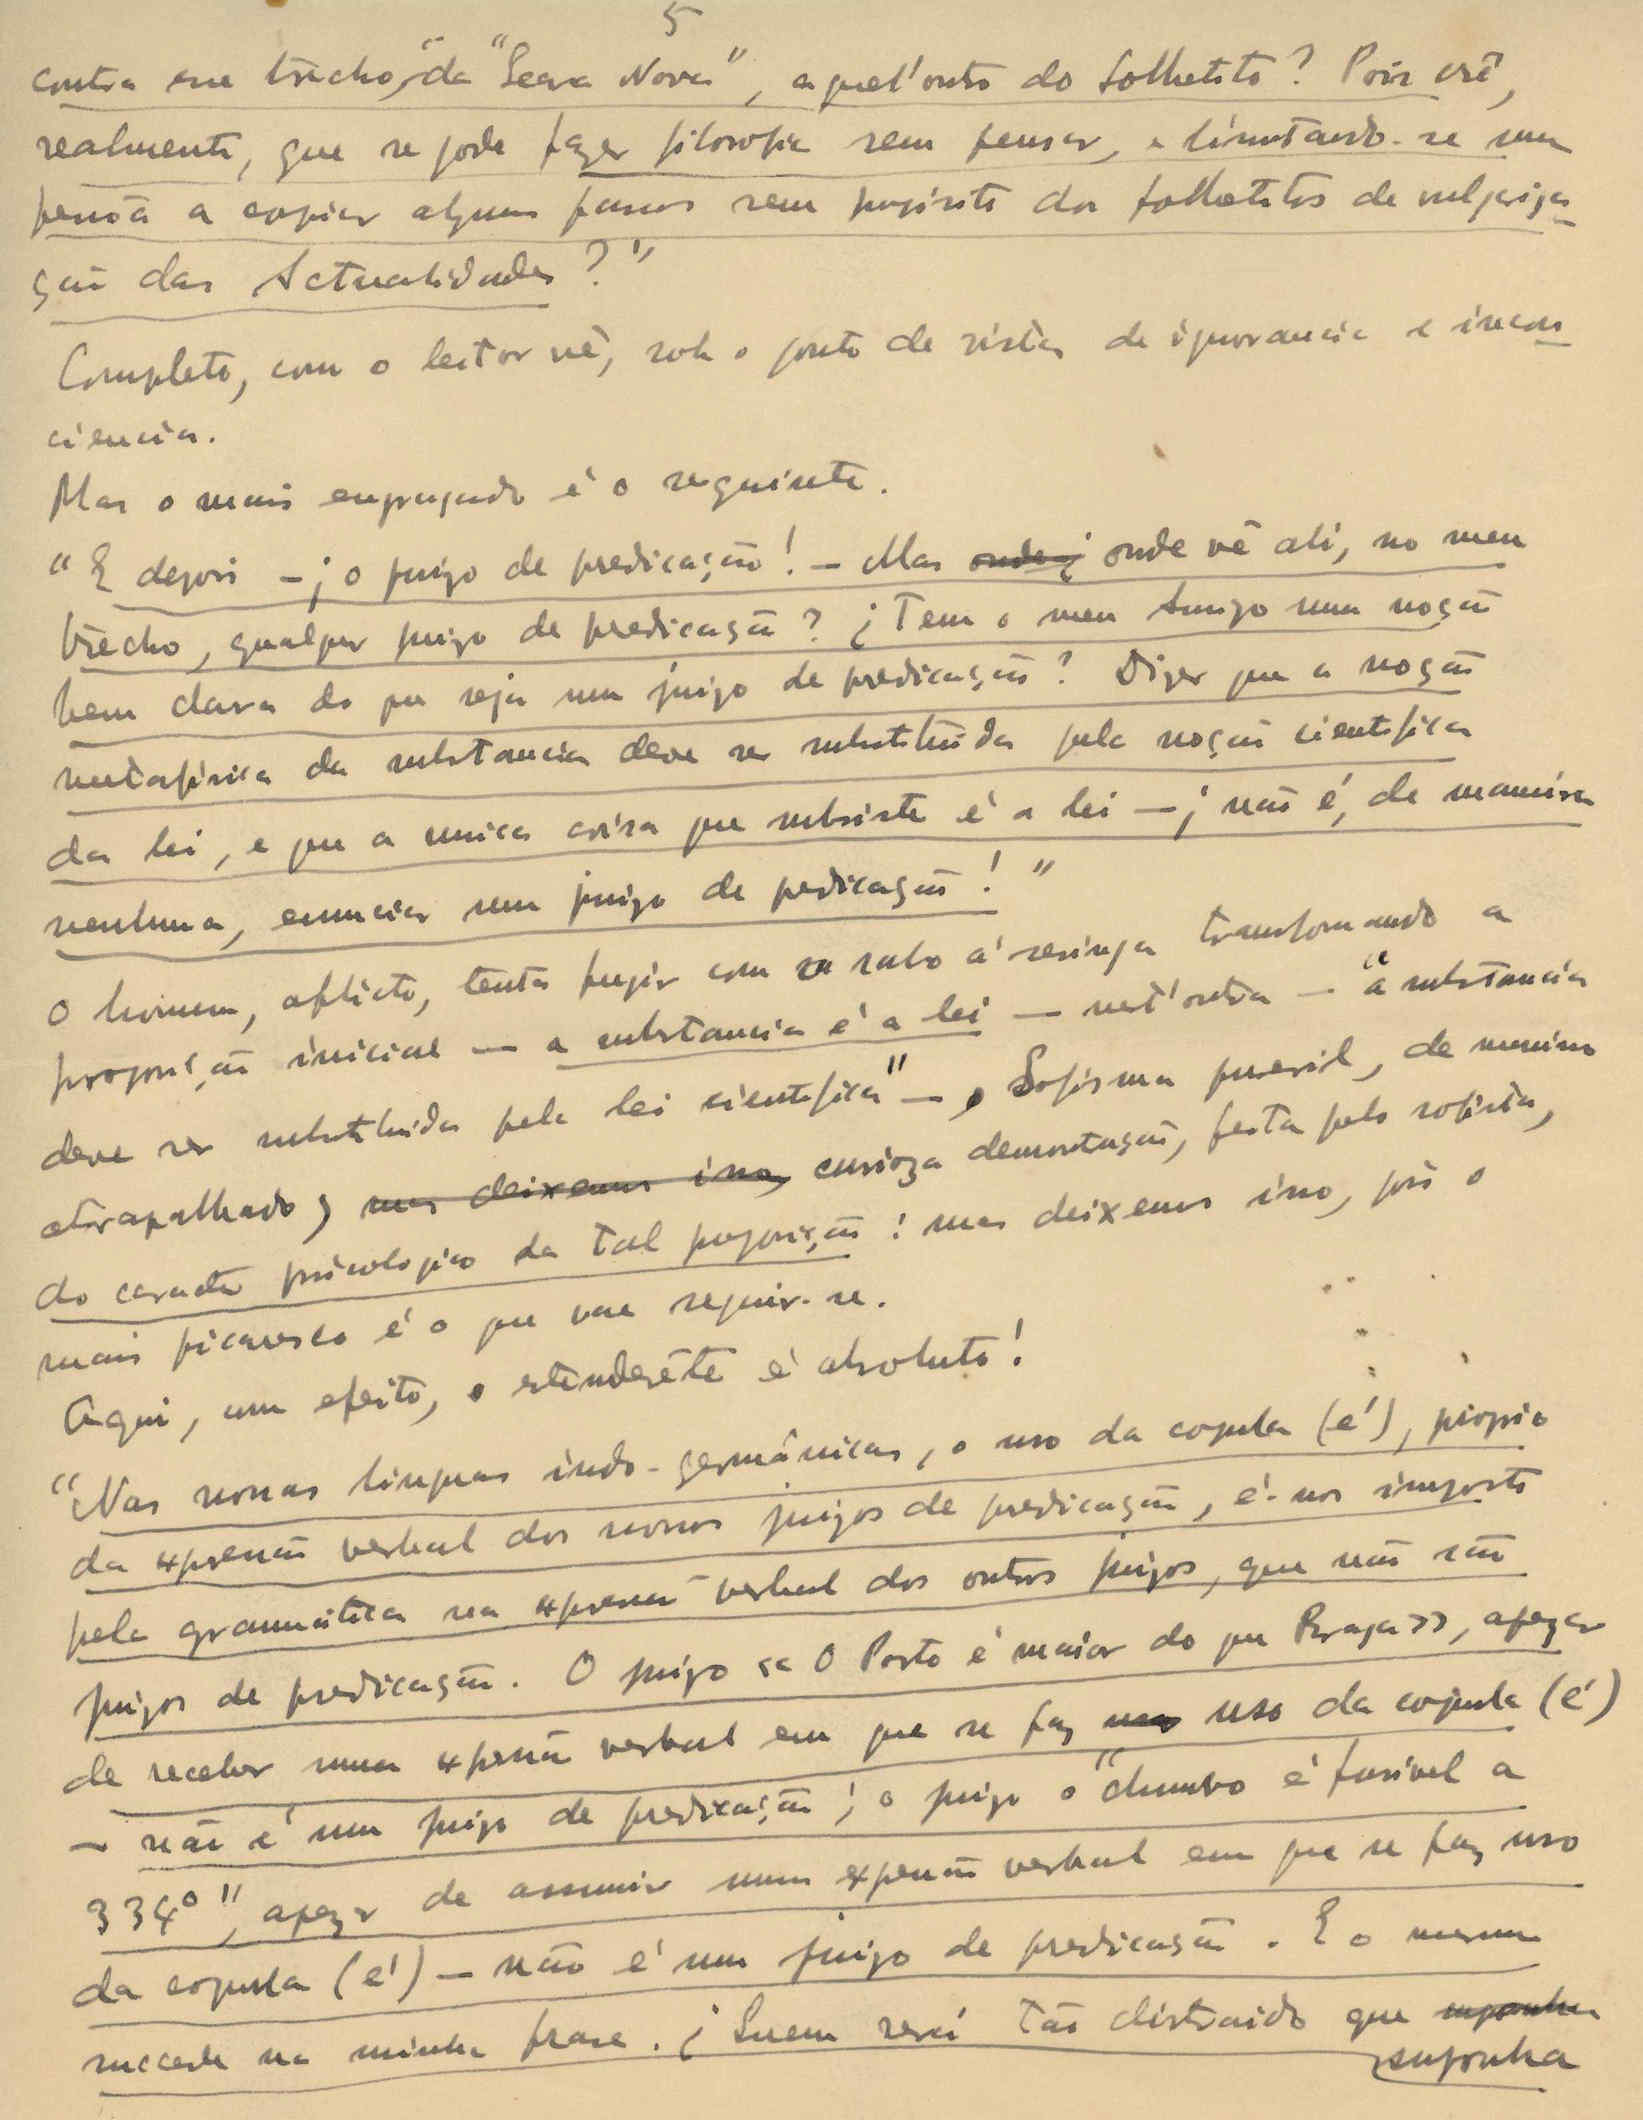 5
contra esse trecho, da "Seara Nova", aquel'outro do folheto? Pois crê,
realmente, que se pode fazer filosofia sem pensar, e limitando-se uma
pessoa a copiar alguns passos sem propósito dos folhetos de vulgariza-
ção das Actualidades?"
Completo, com o leitor vê, sob o ponto de vista de ignorancia e incons-
ciencia.
Mas o mais engraçado é o seguinte.
"E depois – ¡o juizo de predicação! – Mas onde ¿ onde vê ali, no meu
trecho, qualquer juizo de predicação? ¿Tem o meu Amigo uma noção
bem clara do que seja um juizo de predicação? Dizer que a noção
metafisica da substancia deve ser substituida pela noção cientifica
da lei, e que a unica coisa que subsiste é a lei – ¡não é, de maneira
nenhuma, enunciar um juizo de predicação!"
O homem, aflicto, tenta fugir com o rabo á seringa transformando a
proposição inicial – a substancia é a lei – nest'outra – "a substancia
deve ser substituida pela lei cientifica" –, Sofisma pueril, de menino
atrapalhado, mas deixemos isso, curioza demonstração, feita pelo sofista,
do caracter psicologico da tal proposição: mas deixemos isso, pois o
mais picaresco é o que vae seguir-se.
Aqui, com efeito, o estenderéte é absoluto!
"Nas nossas linguas indo-germânicas, o uso da copula (é), proprio
da expressão verbal dos nossos juizos de predicação, é-nos imposto
pela gramática na expressão verbal dos outros juizos, que não são
juizos de predicação. O juizo «O Porto é maior do que Braga», apezar
de receber uma expressão verbal em que se faz uso da copula (é)
– não é um juizo de predicação; o juizo o "chumbo é fusivel a
334º", apezar de assumir uma expressão verbal em que se faz uso
da copula (é) – não é um juizo de predicação. E o mesmo
succede na minha frase. ¿Quem será tão distraido que suponha
suponha